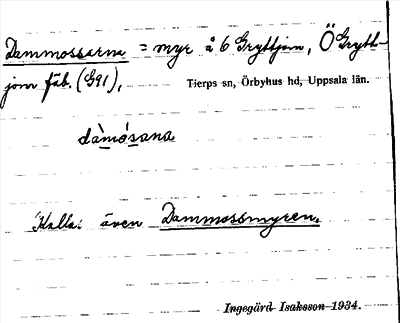 Dammossarna = myr å 6 Gryttjom, Ö Grytt-
jom fäb. (G91),
Tierps sn, Örbyhus hd, Uppsala län.
dàmósana
Kallas även Dammossmyren.
Ingegärd Isaksson 1934.